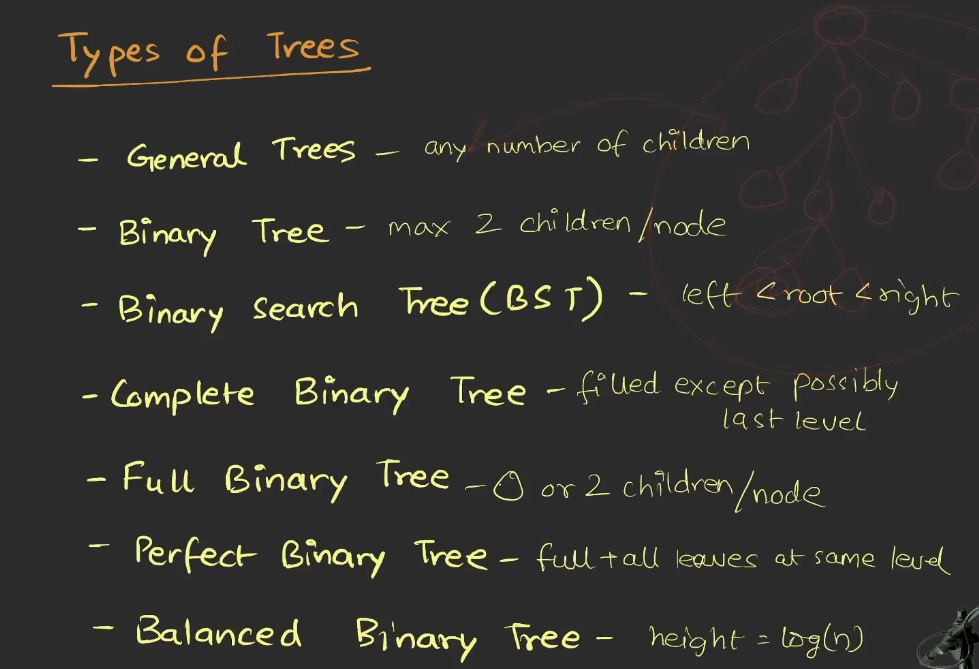 Types of Trees
- General Trees - any number of children
- Binary Tree - max 2 children/node
- Binary search Tree (BST) - left < root < right
- Complete Binary Tree - filled except possibly
last level
- Full Binary Tree - 0 or 2 children/node
- Perfect Binary Tree - full + all leaves at same level
- Balanced Binary Tree - height = log(n)